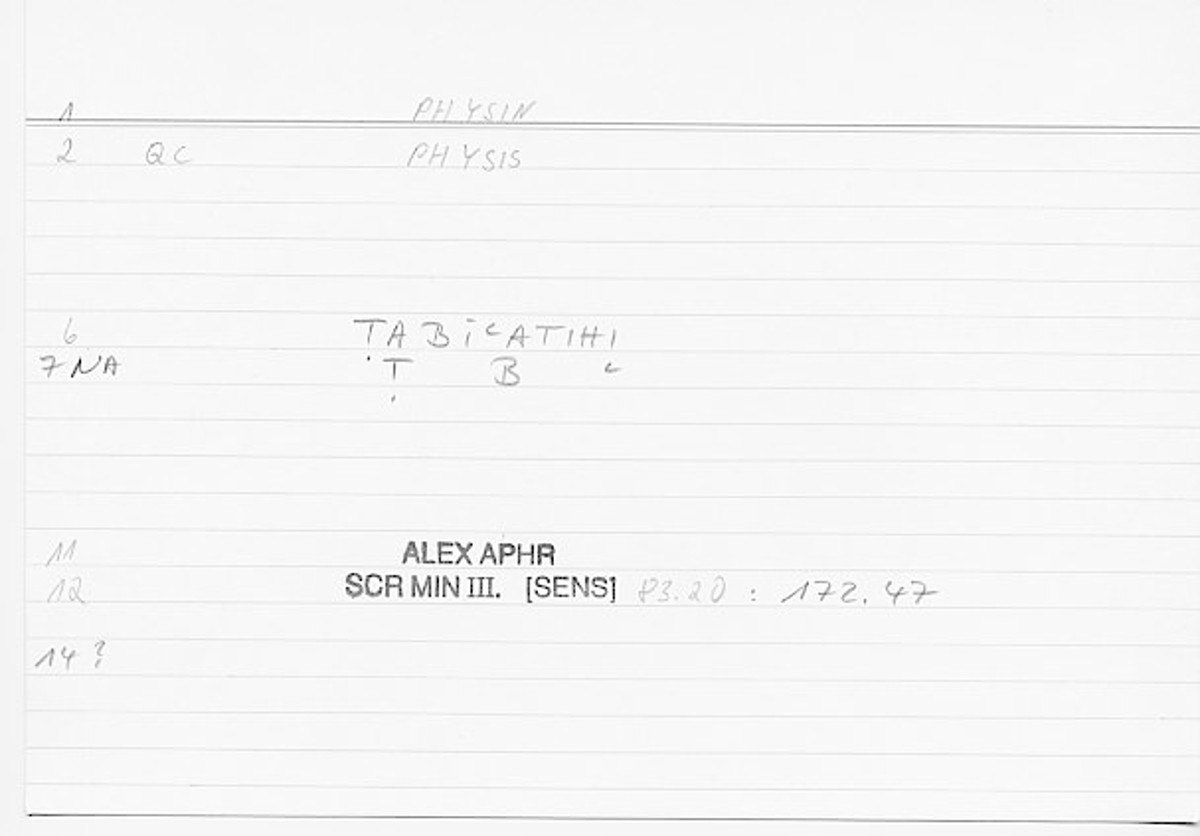 1 PHYSIN
2 QC PHYSIS
6 TABiʿATIHI
7 NA Ṭ B ʿ
11 ALEX APHR
12 SCR MIN III. [SENS] 83.20 : 172.47
14 ?